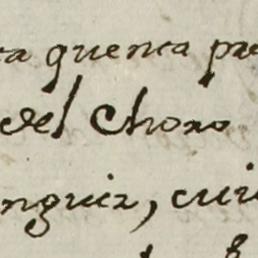 ta quenca pa
del Choro
nguiz, cui